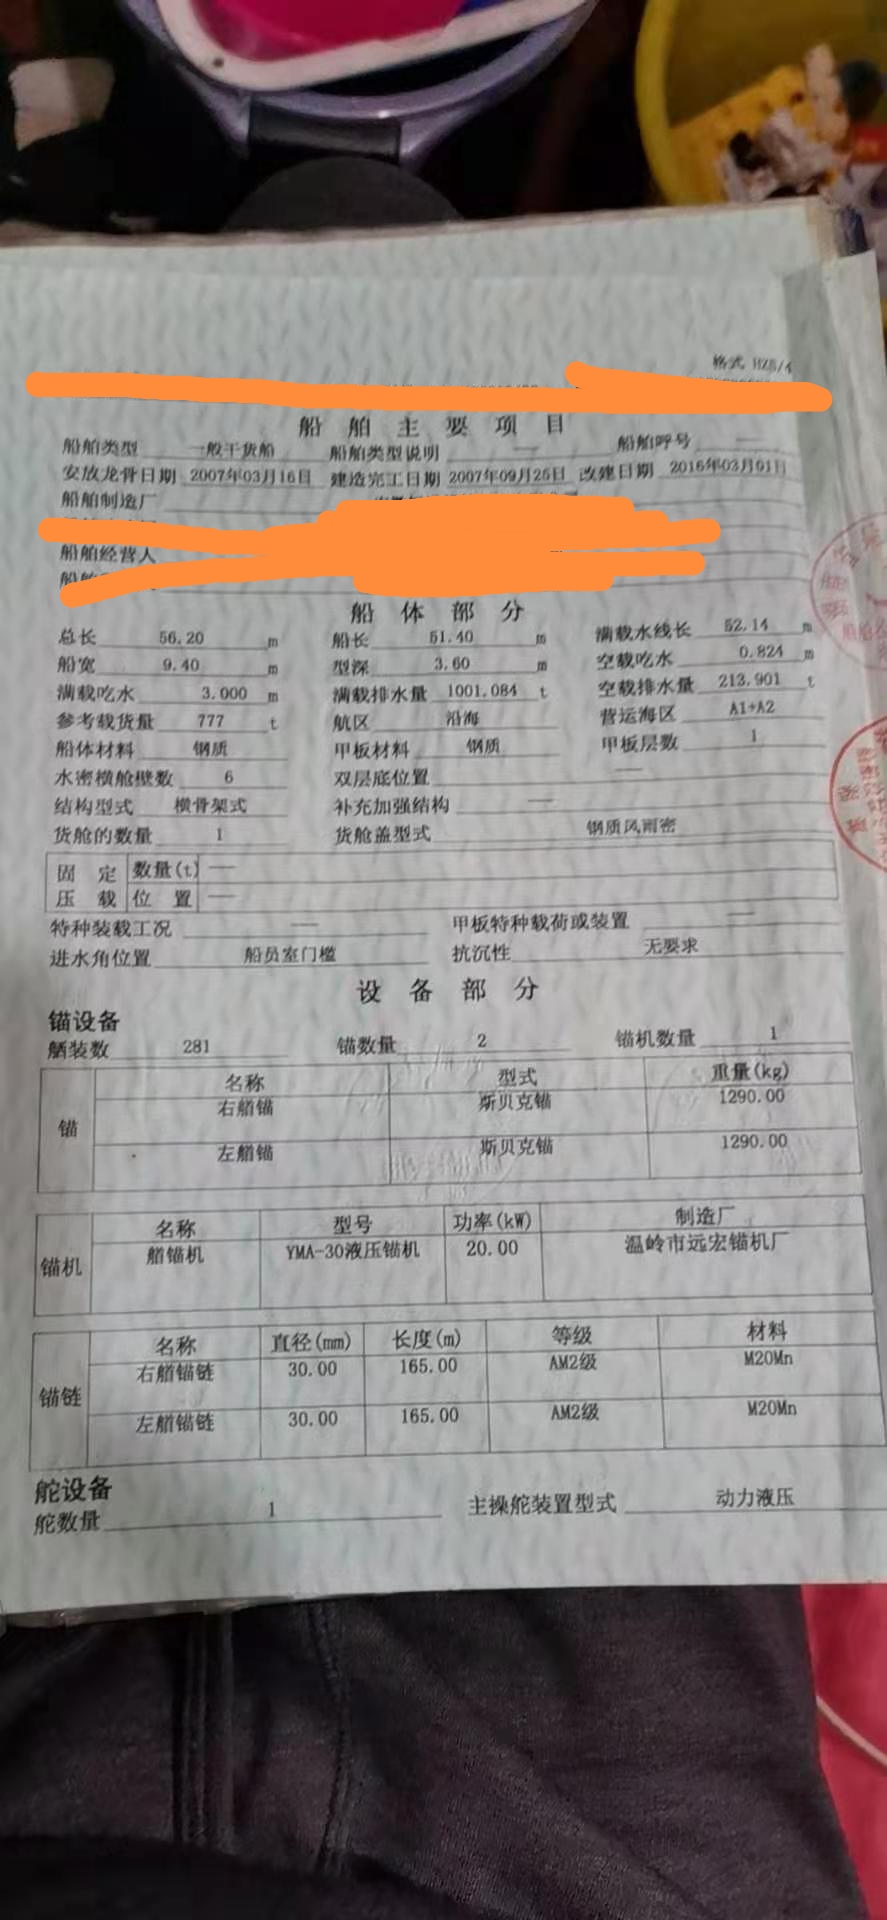 格式 HZB/4
船舶主要项目
船舶类型 一般干货船 船舶类型说明 — 船舶呼号 —
安放龙骨日期 2007年03月16日 建造完工日期 2007年09月25日 改建日期 2016年03月01日
船舶制造厂
船舶经营人
船体部分
总长 56.20 m 船长 51.40 m 满载水线长 52.14 m
船宽 9.40 m 型深 3.60 m 空载吃水 0.824 m
满载吃水 3.000 m 满载排水量 1001.084 t 空载排水量 213.901 t
参考载货量 777 t 航区 沿海 营运海区 A1+A2
船体材料 钢质 甲板材料 钢质 甲板层数 1
水密横舱壁数 6 双层底位置 —
结构型式 横骨架式 补充加强结构 —
货舱的数量 1 货舱盖型式 钢质风雨密
固定 数量(t) —
压载 位置 —
特种装载工况 — 甲板特种载荷或装置 —
进水角位置 船员室门槛 抗沉性 无要求
设备部分
锚设备
舾装数 281 锚数量 2 锚机数量 1
名称 型式 重量(kg)
锚 右艏锚 斯贝克锚 1290.00
左艏锚 斯贝克锚 1290.00
名称 型号 功率(kW) 制造厂
锚机 艏锚机 YMA-30液压锚机 20.00 温岭市远宏锚机厂
名称 直径(mm) 长度(m) 等级 材料
锚链 右艏锚链 30.00 165.00 AM2级 M20Mn
左艏锚链 30.00 165.00 AM2级 M20Mn
舵设备
舵数量 1 主操舵装置型式 动力液压